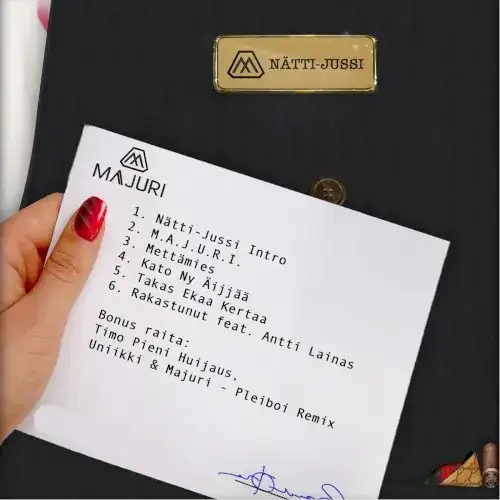 NÄTTI-JUSSI
MAJURI
1. Nätti-Jussi Intro
2. M.A.J.U.R.I.
3. Mettämies
4. Kato Ny Äijjää
5. Takas Ekaa Kertaa
6. Rakastunut feat. Antti Lainas
Bonus raita:
Timo Pieni Huijaus,
Uniikki & Majuri - Pleiboi Remix